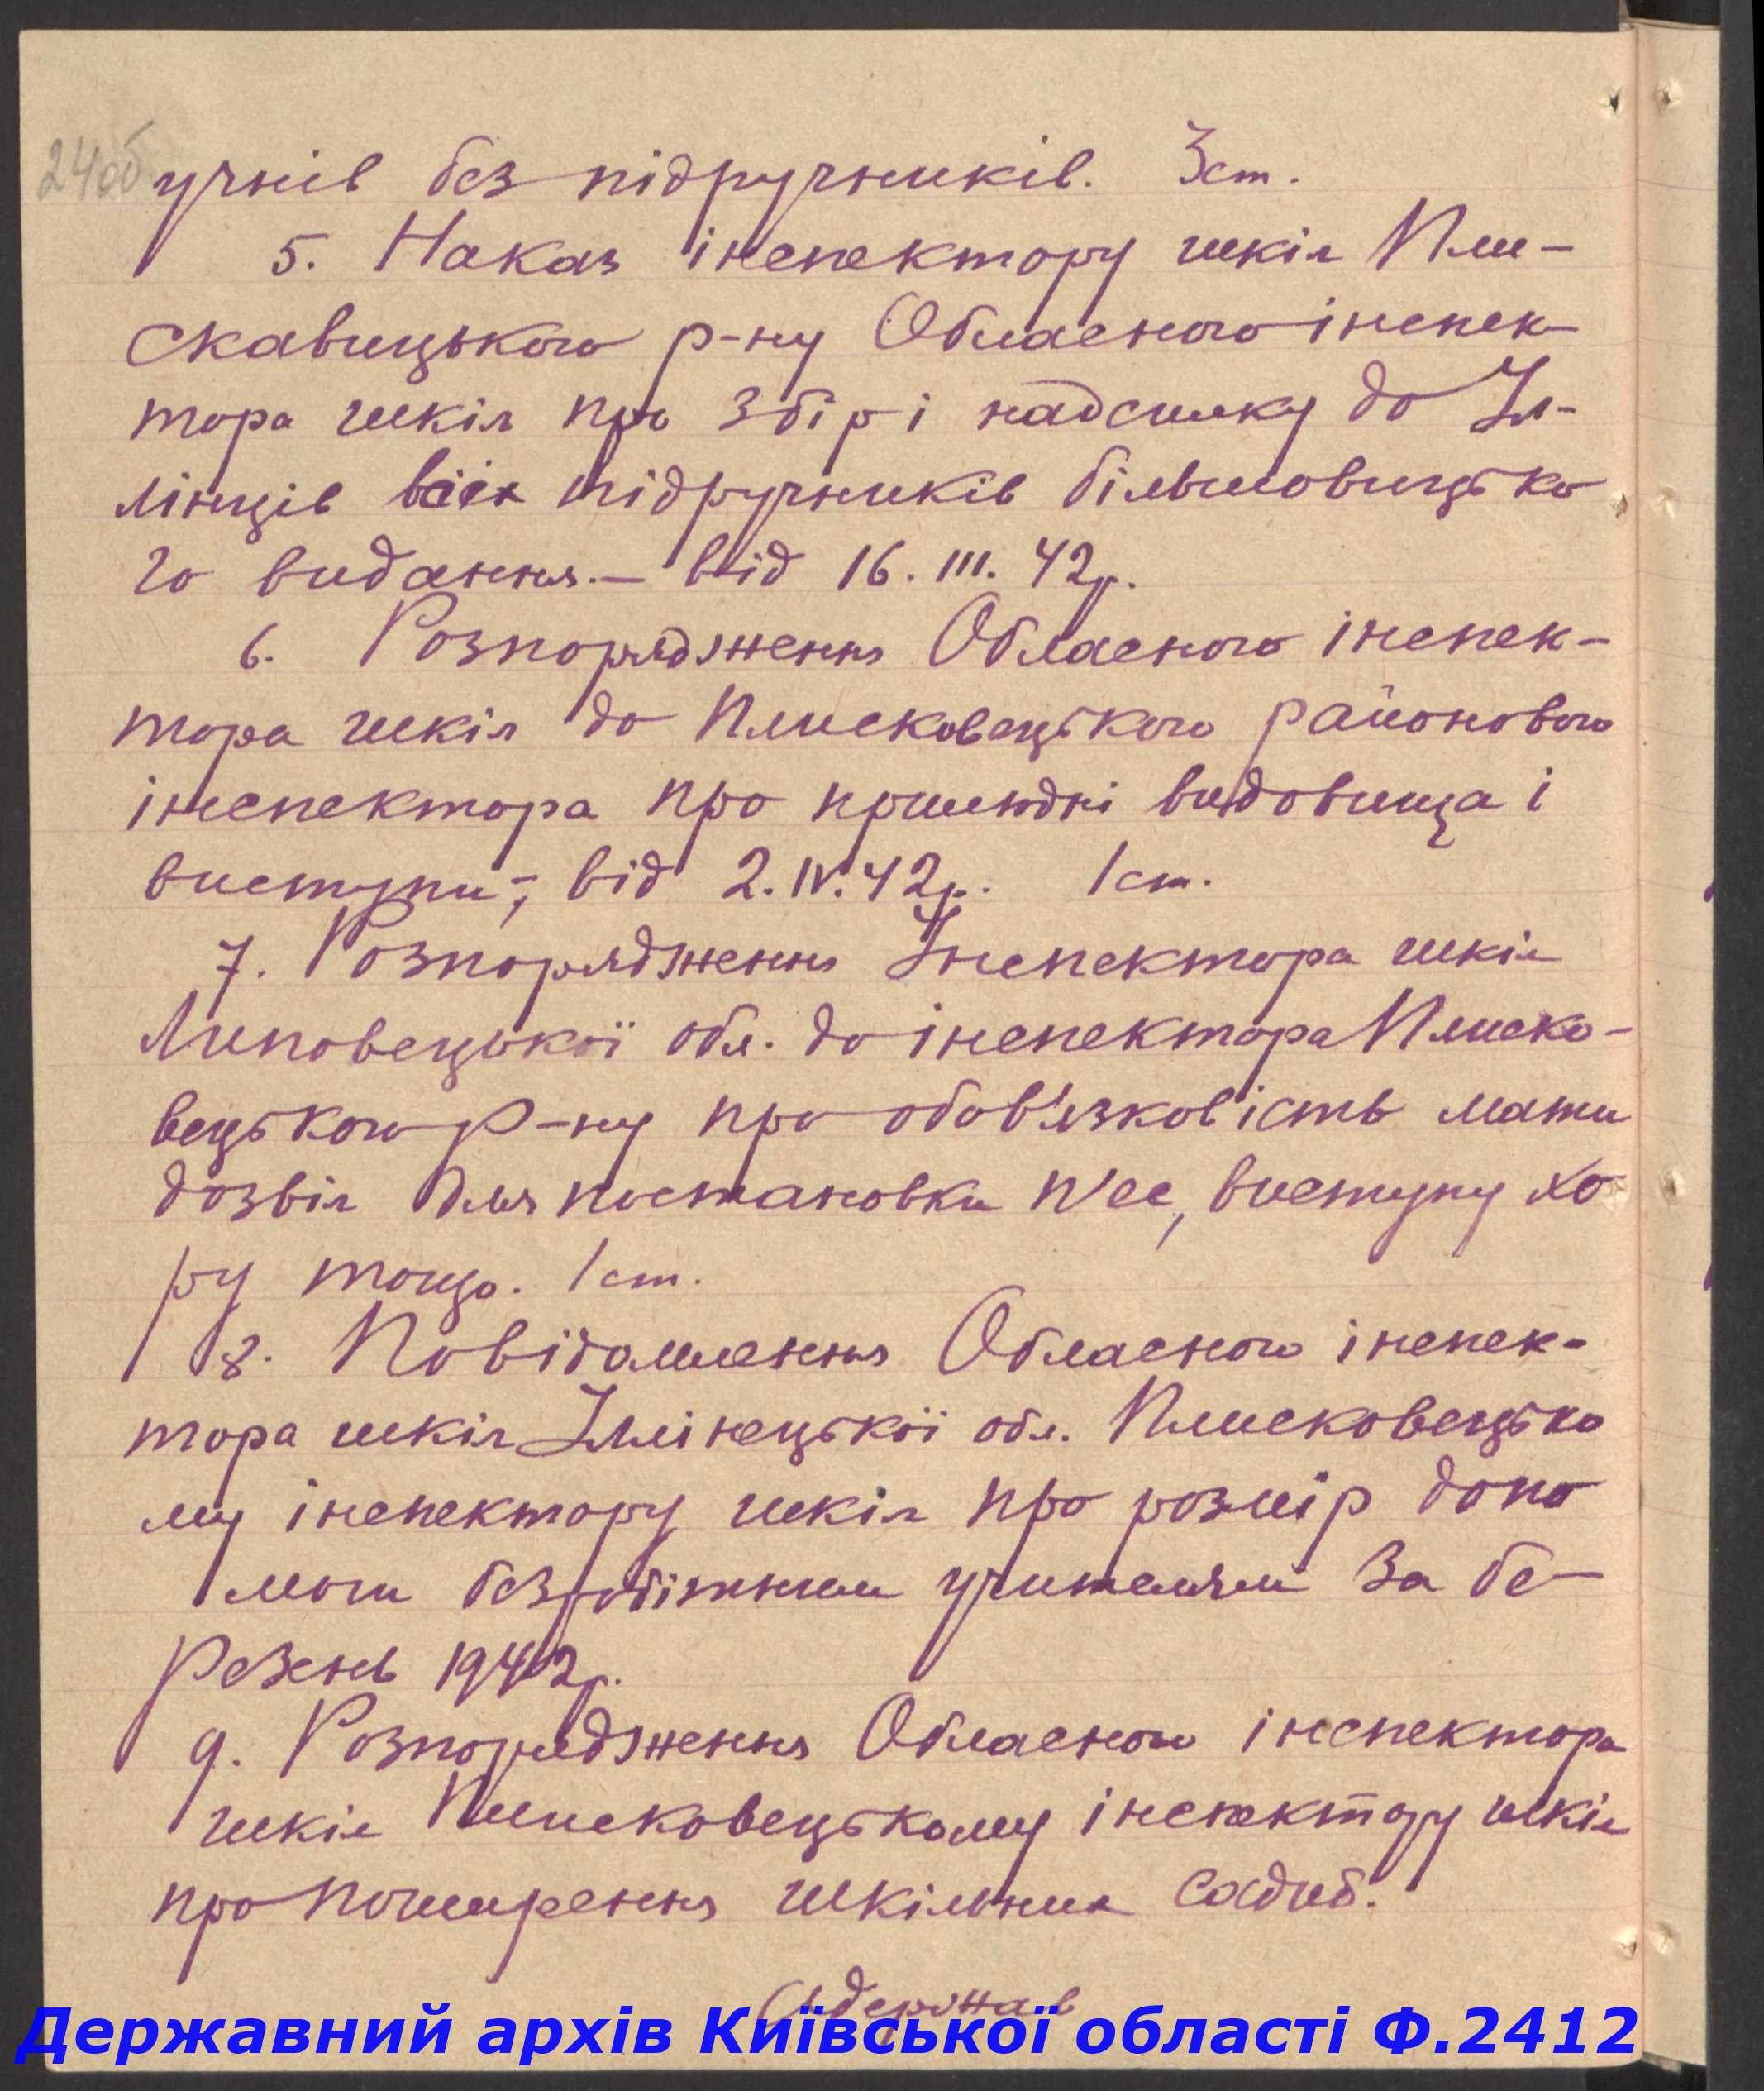 24об
учнів без підручників. 3 ст.
5. Наказ інспектору шкіл Пли-
скавицького р-ну Обласного інспек-
тора шкіл про збір і надсилку до Іл-
лінців всіх підручників більшовицько
го видання. – від 16. III. 42р.
6. Розпорядження Обласного інспек-
тора шкіл до Плисковецького районового
інспектора про прилюдні видовища і
виступи –, від 2. IV. 42р. 1 ст.
7. Розпорядження Інспектора шкіл
Липовецької обл. до інспектора Плиско-
вецького р-ну про обов'язковість мати
дозвіл для постановки п'єс, виступу хо
ру тощо. 1 ст.
8. Повідомлення Обласного інспек-
тора шкіл Іллінецької обл. Плисковецько
му інспектору шкіл про розмір допо
моги безробітним учителям за бе-
резень 1942р.
9. Розпорядження Обласного інспектора
шкіл Плисковецькому інспектору шкіл
про поширення шкільних садиб.
Одержав
Державний архів Київської області Ф.2412